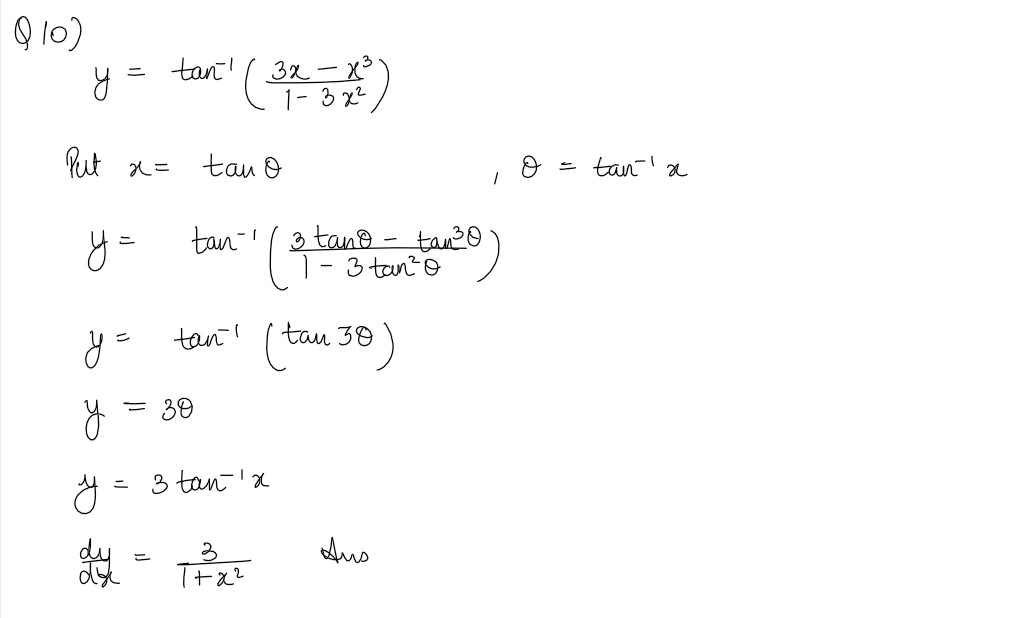 Q10)
y = tan⁻¹ ( (3x − x³) / (1 − 3x²) )
Put x = tan θ , θ = tan⁻¹ x
y = tan⁻¹ ( (3 tanθ − tan³θ) / (1 − 3 tan²θ) )
y = tan⁻¹ (tan 3θ)
y = 3θ
y = 3 tan⁻¹ x
dy/dx = 3/(1+x²) Ans